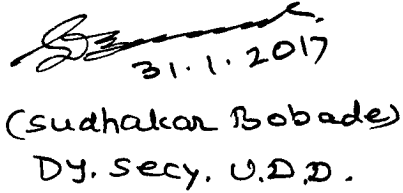 31.1.2017
(Sudhakar Bobade)
Dy. Secy. U.D.D.